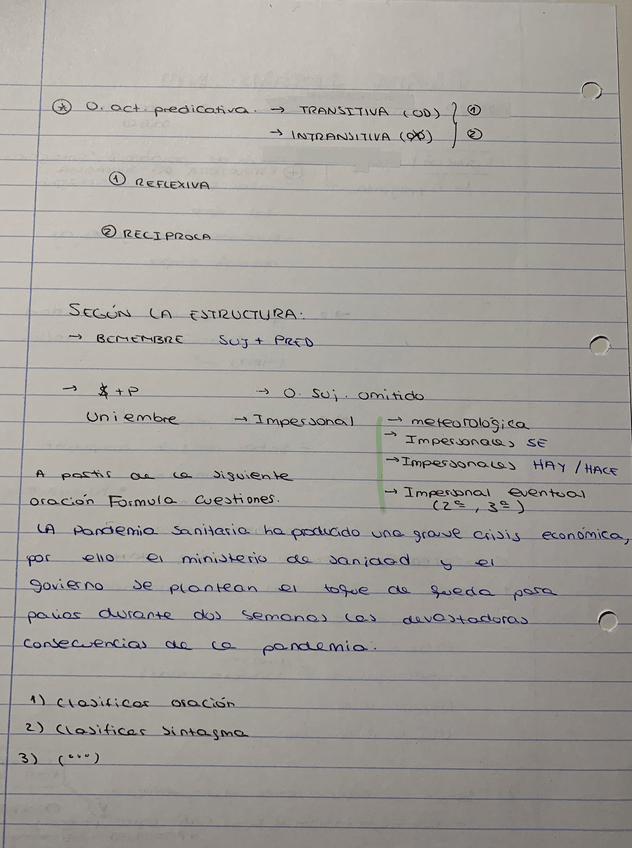 ⊛ O. act. predicativa. → TRANSITIVA (OD) } ①
→ INTRANSITIVA (OD) } ②
① REFLEXIVA
② RECIPROCA
SEGÚN LA ESTRUCTURA:
→ BEMEMBRE SUJ + PRED
→ $ + P → O. Suj. omitido
Uniembre → Impersonal → meteorológica
→ Impersonales SE
→ Impersonales HAY / HACE
A partir de la siguiente → Impersonal eventual
oración Formula cuestiones. (2ª, 3ª)
LA Pandemia Sanitaria ha producido una grave crisis económica,
por ello el ministerio de sanidad y el
govierno se plantean el toque de queda para
paliar durante dos semanas las devastadoras
consecuencias de la pandemia.
1) Clasificar oración
2) Clasificar sintagma
3) (...)